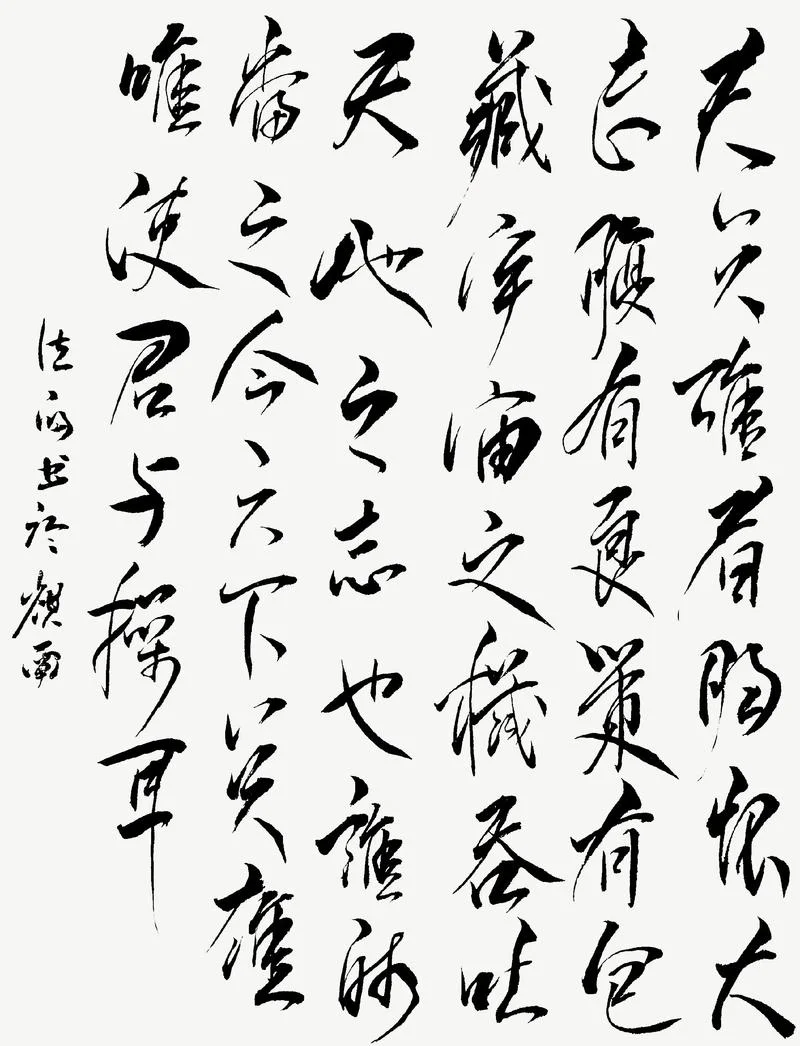 夫英雄者胸懷大
志腹有良策有包
藏宇宙之機吞吐
天地之志也誰能
當之今天下英雄
唯使君与操耳
书於嶺南